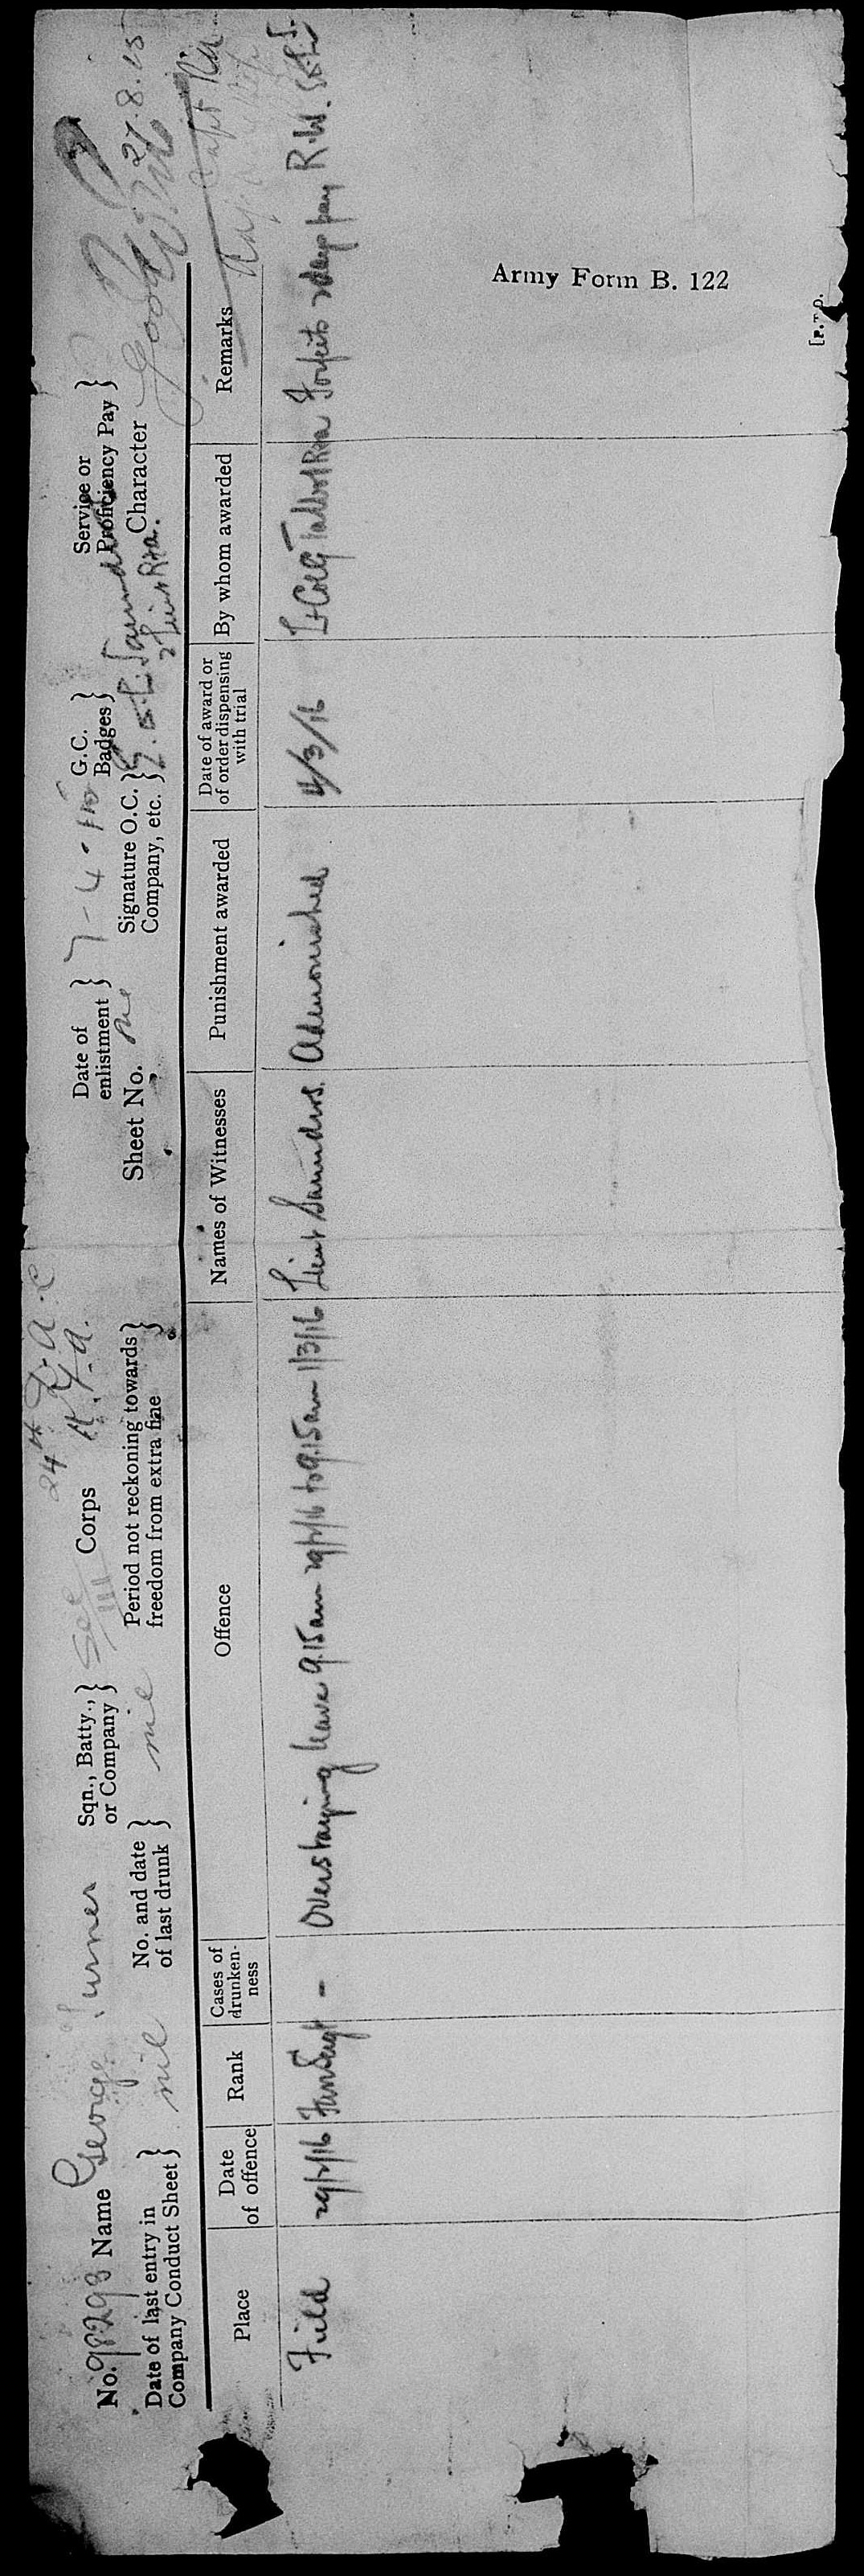 24th D.A.C
No. 98293 Name George Turner Sqn., Batty., or Company } Corps R.F.A. Date of enlistment } 7-4-15 G.C. Badges } Service or Proficiency Pay }
Date of last entry in Company Conduct Sheet } nil No. and date of last drunk } nil Period not reckoning towards freedom from extra fine } Sheet No. Signature O.C. Company, etc. } Saunders 2 Lieut RFA. Character Good 27.8.15
Place Date of offence Rank Cases of drunken-ness Offence Names of Witnesses Punishment awarded Date of award or of order dispensing with trial By whom awarded Remarks
Field 29/2/16 - Overstaying leave 9.15am 29/2/16 to 9.15am 1/3/16 Lieut Saunders Admonished 4/3/16 Lt Col Talbot RFA Forfeits 2 days pay R.W.
Army Form B. 122
[P.T.O.